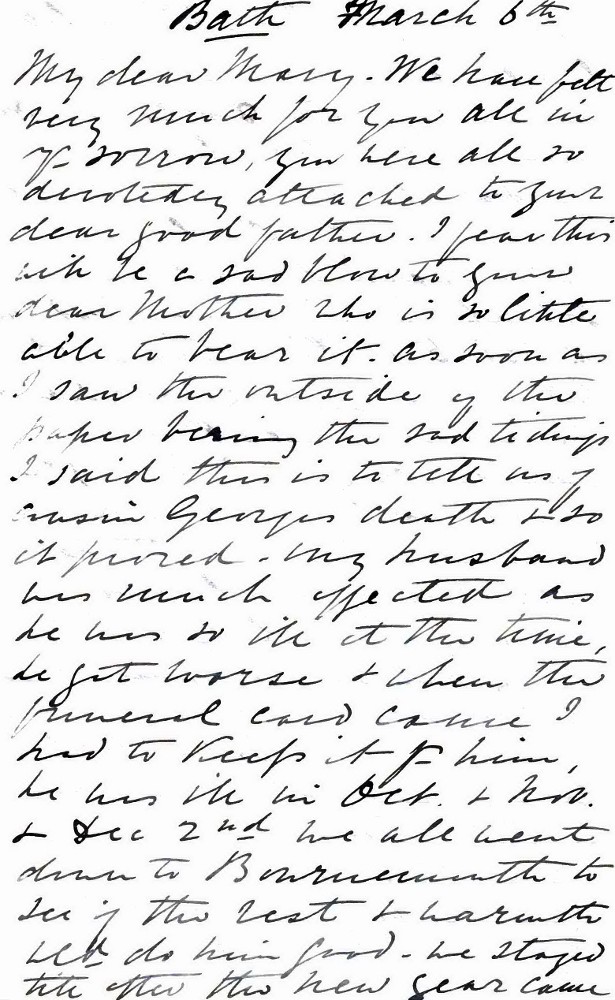 Bath March 6th
My dear Mary. We have felt
very much for you all in
yr sorrow, you were all so
devotedly attached to your
dear good father. I fear this
will be a sad blow to your
dear Mother who is so little
able to bear it. as soon as
I saw the outside of the
paper bearing the sad tidings
I said this is to tell us of
cousin Georges death & so
it proved - my husband
was much affected as
he was so ill at the time,
he got worse & when the
funeral card came I
had to keep it fr him,
he was ill in Oct. & Nov.
& Dec 2nd we all went
down to Bournemouth to
see if the rest & warmth
wld do him good - we stayed
till after the new year came